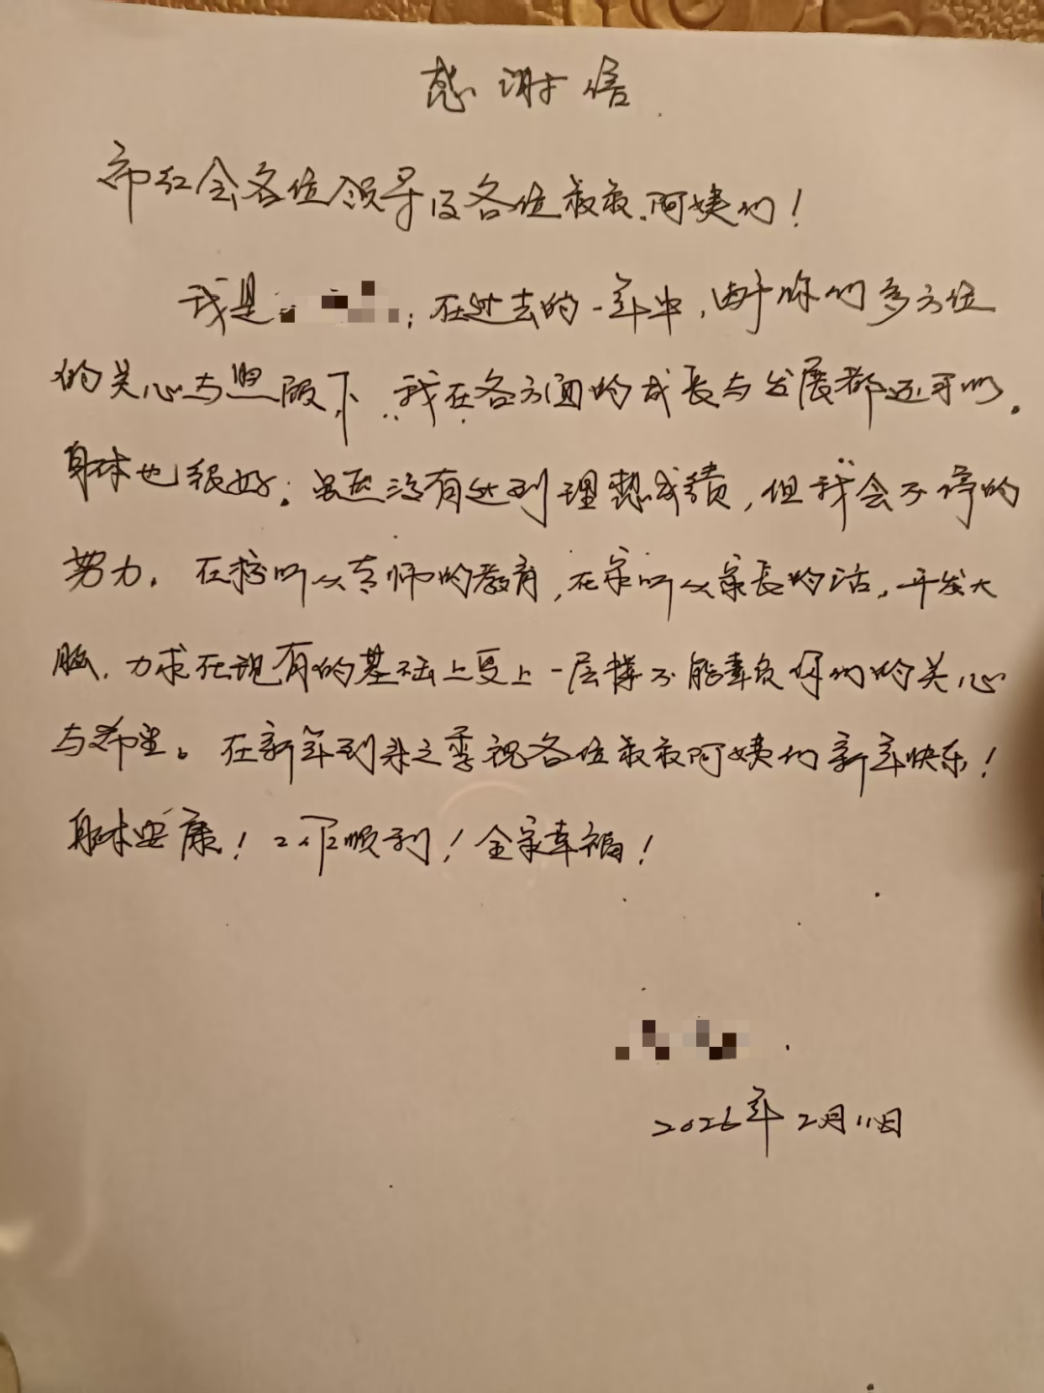 感谢信
市红会各位领导及各位叔叔.阿姨们!
我是 ;在过去的一年中,由于你们多方位
的关心与照顾下,我在各方面的成长与发展都还可以。
身体也很好。虽然没有达到理想成绩,但我会不停的
努力。在校听从老师的教育,在家听从家长的话,开发大
脑,力求在现有的基础上更上一层楼不能辜负你们的关心
与希望。在新年到来之季祝各位叔叔阿姨们新年快乐!
身体安康!工作顺利!全家幸福!
2026年2月11日